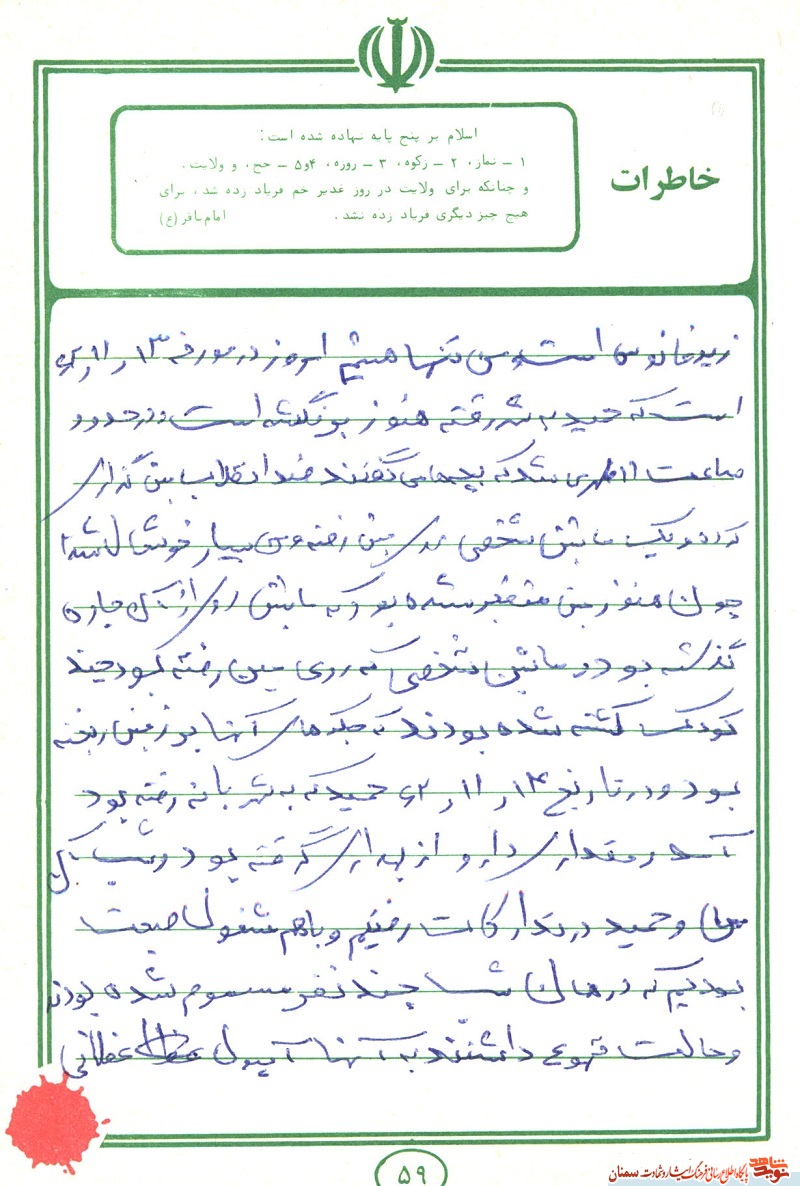 خاطرات
اسلام بر پنج پایه نهاده شده است:
۱ ـ نماز، ۲ ـ زکوه، ۳ ـ روزه، ۴و۵ ـ حج، و ولایت.
و چنانکه برای ولایت در روز غدیر خم فریاد زده شد، برای
هیچ چیز دیگری فریاد زده نشد. امام باقر (ع)
است و من تنها هستم امروز در مورخه ۱۳ ر ۱۱ ر ۶۲
است که حمید به شهر رفته هنوز برنگشته است و در حدود
ساعت ۱۱ ظهر شد که بچه‌ها می گفتند ضد انقلاب مین گذاری
کرده و یک ماشین شخصی روی مین رفته و من بسیار خوشحال شدم
چون هنوز مین منفجر نشده بود که ماشین روی از جاده
گذشته بود و ماشین شخصی که روی مین رفته بود چند
کودک کشته شده بودند که جگرهای آنها بر زمین ریخته
بود و در تاریخ ۱۴ ر ۱۱ ر ۶۲ حمید که به شهر بانه رفته بود
آمد و مقداری دارو از بهداری گرفته بود و شب
من و حمید در تدارکات رفتیم و باهم مشغول صحبت
بودیم که در همان شب چند نفر مسموم شده بودند
و حالت تهوع داشتند به آنها آمپول عضلانی
۵۹
نوید شاهد
پایگاه اطلاع رسانی فرهنگ ایثار و شهادت سمنان